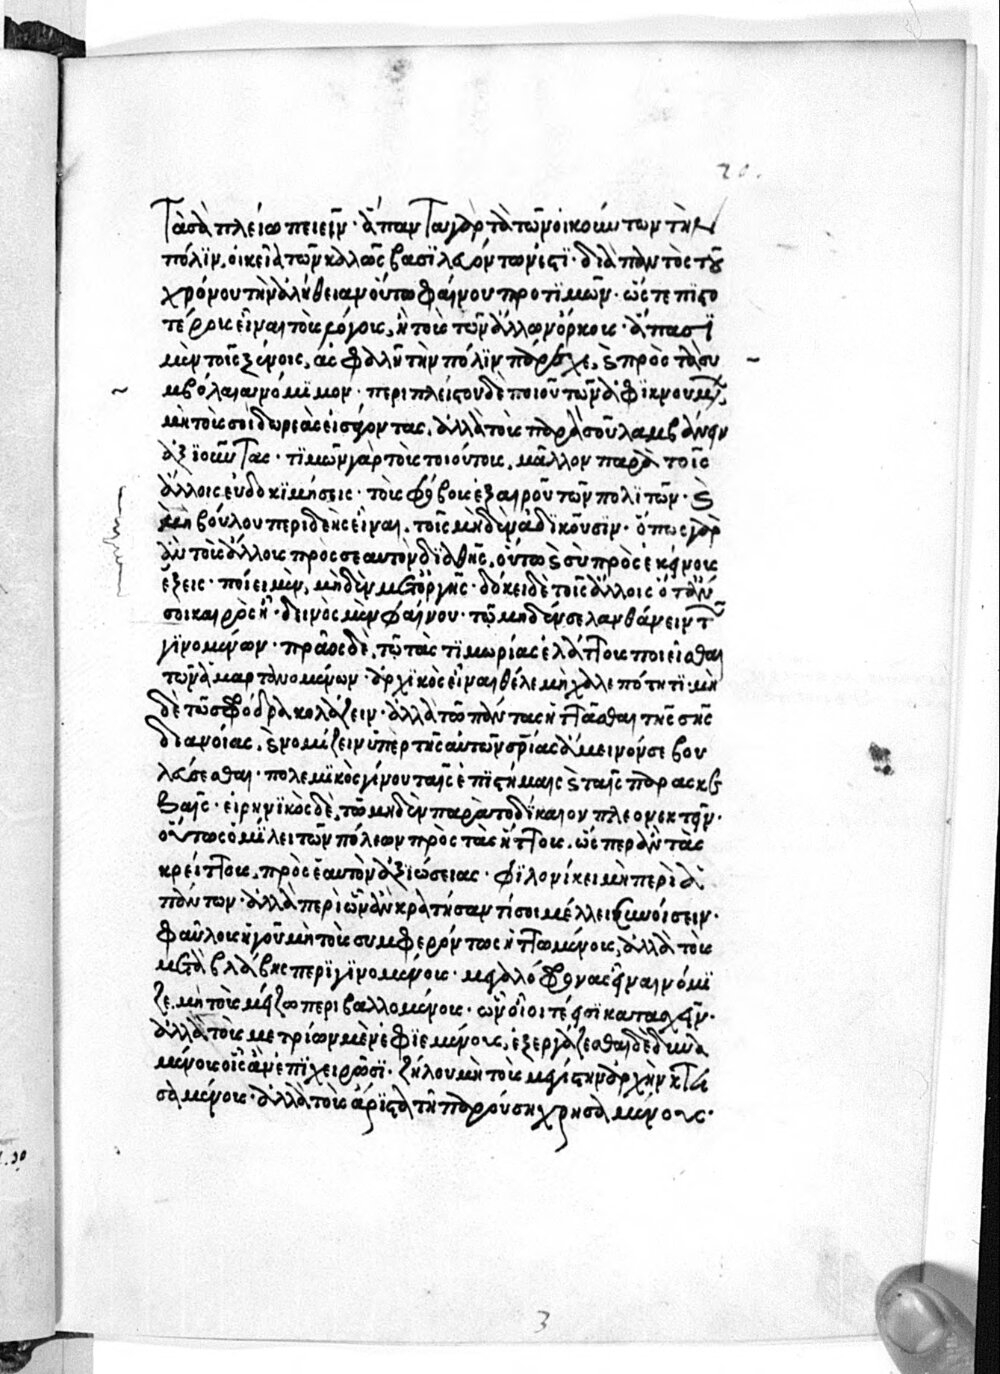 20.
τὰ σὰ πλείω ποιεῖν· ἅπαντα γὰρ τὰ τῶν οἰκούντων τὴν
πόλιν, οἰκεῖα τῶν καλῶς βασιλευόντων ἐστί· διὰ παντὸς τοῦ
χρόνου τὴν ἀλήθειαν οὕτω φαίνου προτιμῶν· ὥστε πιστο
τέρους εἶναι τοὺς σοὺς λόγους, ἢ τοὺς τῶν ἄλλων ὅρκους· ἅπασι
μὲν τοῖς ξένοις, ἀσφαλῆ τὴν πόλιν πάρεχε, καὶ πρὸς τὰ συ
μβόλαια νόμιμον· περὶ πλείστου δὲ ποιοῦ τῶν ἀφικνουμένων,
μὴ τοὺς σοὶ δωρεὰς εἰσφέροντας, ἀλλὰ τοὺς παρὰ σοῦ λαμβάνειν
ἀξιοῦντας· τιμῶν γὰρ τοὺς τοιούτους, μᾶλλον παρὰ τοῖς
ἄλλοις εὐδοκιμήσεις· τοὺς φόβους ἐξαιροῦ τῶν πολιτῶν· καὶ
μὴ βούλου περιδεὴς εἶναι, τοῖς μηδὲν ἀδικοῦσιν· ὅπως γὰρ
ἂν τοὺς ἄλλους πρὸς σεαυτὸν διαθῇς, οὕτω καὶ σὺ πρὸς ἐκείνους
ἕξεις· ποίει μὲν, μηδὲν μετ' ὀργῆς· δόκει δὲ τοῖς ἄλλοις ὅταν
σοι καιρὸς ᾖ· δεινὸς μὲν φαίνου, τῷ μηδέν σε λανθάνειν τῶν
γινομένων· πρᾶος δὲ, τῷ τὰς τιμωρίας ἐλάττους ποιεῖσθαι
τῶν ἁμαρτανομένων· ἀρχικὸς εἶναι θέλε μὴ χαλεπότητι· μη
δὲ τῷ σφόδρα κολάζειν· ἀλλὰ τῷ πάντας ἡττᾶσθαι τῆς σῆς
διανοίας, καὶ νομίζειν ὑπὲρ τῆς αὑτῶν σωτηρίας ἄμεινόν σε βου
λεύεσθαι· πολεμικὸς γίνου ταῖς ἐπιστήμαις καὶ ταῖς παρασκευ
αῖς· εἰρηνικὸς δὲ, τῷ μηδὲν παρὰ τὸ δίκαιον πλεονεκτεῖν·
οὕτως ὁμίλει τῶν πόλεων πρὸς τὰς ἥττους, ὥσπερ ἂν τὰς
κρείττους, πρὸς ἑαυτὸν ἀξιώσειας· φιλονίκει μὴ περὶ ἁ
πάντων· ἀλλὰ περὶ ὧν ἂν κρατήσαντί σοι μέλλει συνοίσειν·
φαύλους ἡγοῦ μὴ τοὺς συμφερόντως ἡττωμένους, ἀλλὰ τοὺς
μετὰ βλάβης περιγινομένους· μεγαλόφρονας εἶναι νόμι
ζε, μὴ τοὺς μείζω περιβαλλομένους, ὧν οἷοί τέ εἰσι κατασχεῖν·
ἀλλὰ τοὺς μετρίων μὲν ἐφιεμένους, ἐξεργάζεσθαι δὲ δυνα
μένους οἷς ἂν ἐπιχειρῶσι· ζήλου μὴ τοὺς μεγίστην ἀρχὴν κτη
σαμένους· ἀλλὰ τοὺς ἄριστα τῇ παρούσῃ χρησαμένους·
3